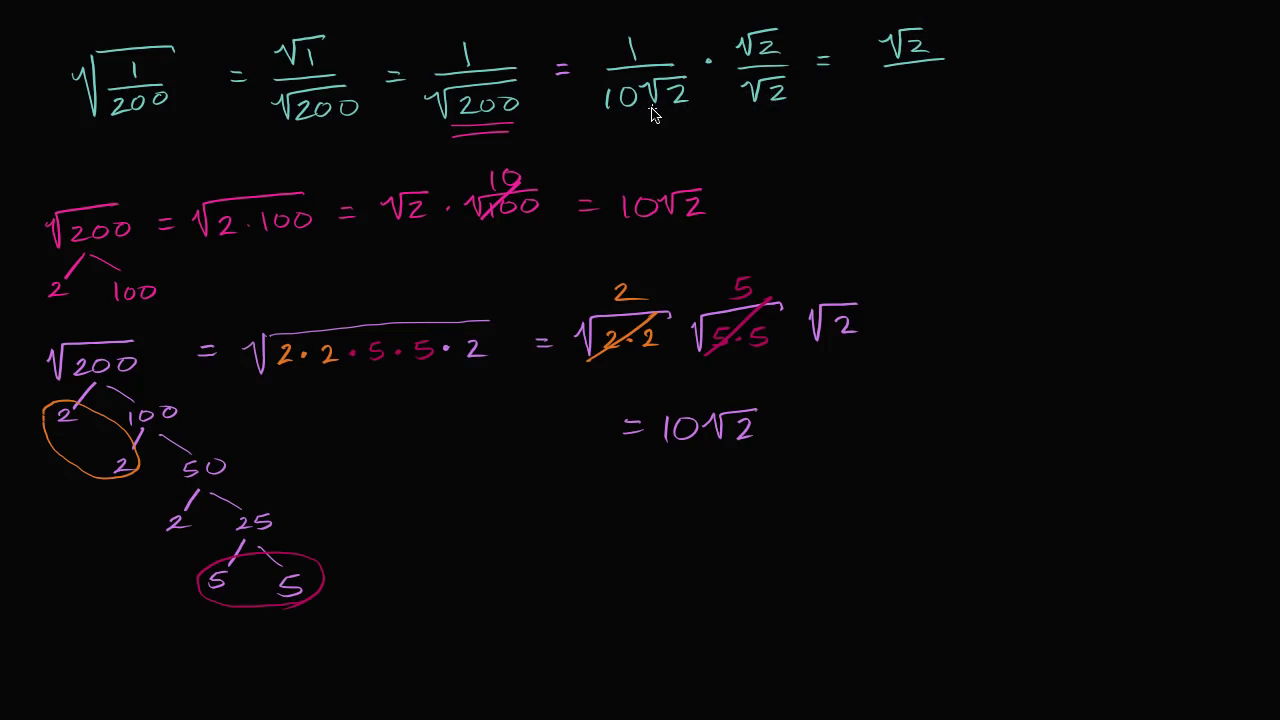 √(1/200) = √1/√200 = 1/√200 = 1/(10√2) · √2/√2 = √2/
√200 = √(2·100) = √2 · √100 10 = 10√2
2 100
√200 = √(2·2·5·5·2) = √(2·2) 2 √(5·5) 5 √2
2 100 = 10√2
2 50
2 25
5 5